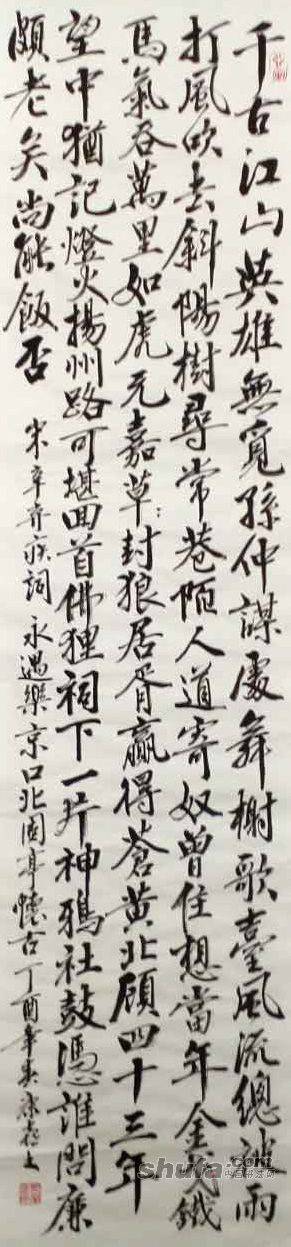 千古江山英雄無覓孫仲謀處舞榭歌臺風流總被雨
打風吹去斜陽樹尋常巷陌人道寄奴曾住想當年金戈鐵
馬氣吞萬里如虎元嘉草:封狼居胥贏得蒼黃北顧四十三年
望中猶記燈火揚州路可堪回首佛狸祠下一片神鴉社鼓憑誰問廉
頗老矣尚能飯否
宋辛弃疾詞永遇樂京口北固亭懷古丁酉年
shufa